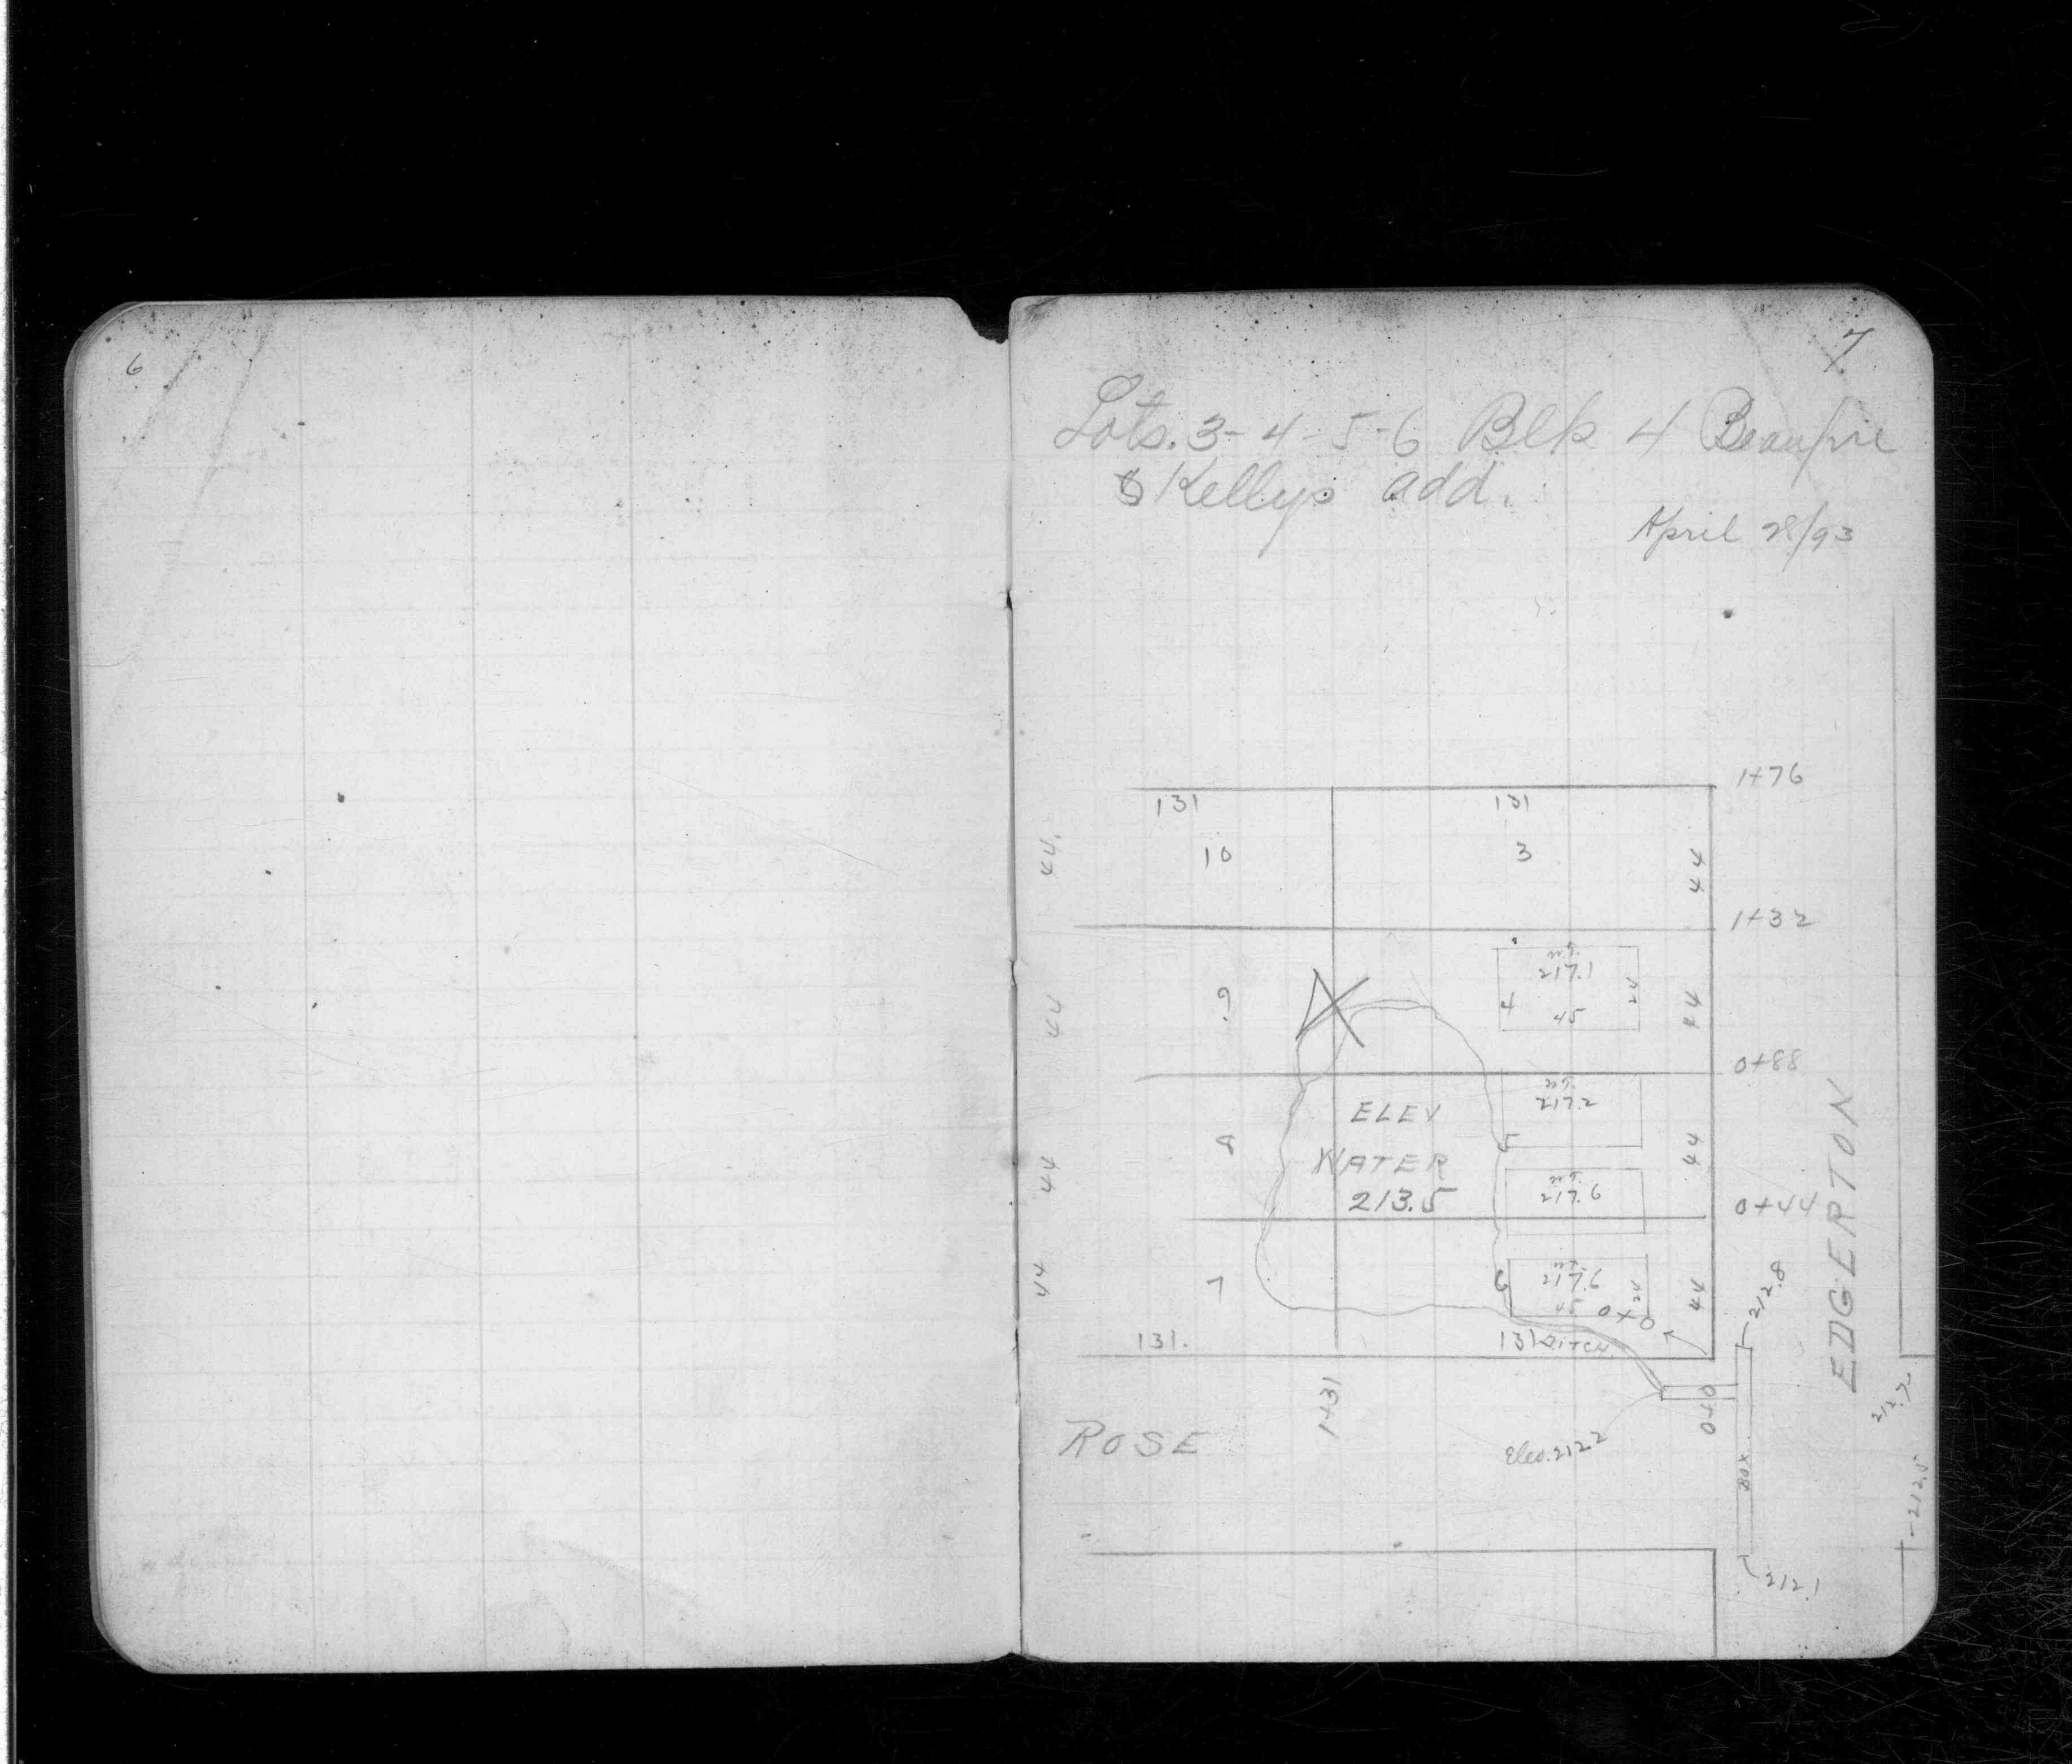 6
7
Lots. 3-4-5-6 Blk 4 Beaupre
& Kellys add.
April 28/93
1+76
131
131
44
10
3
44
1+32
217.1
44
9
4
45
24
44
0+88
217.2
ELEV
WATER
213.5
44
8
5
44
217.6
0+44
EDGERTON
44
7
6
217.6
24
44
0+0
212.8
131.
131
DITCH.
1+31
0+0
212.7
ROSE
Elev. 212.2
BOX
212.5
212.1